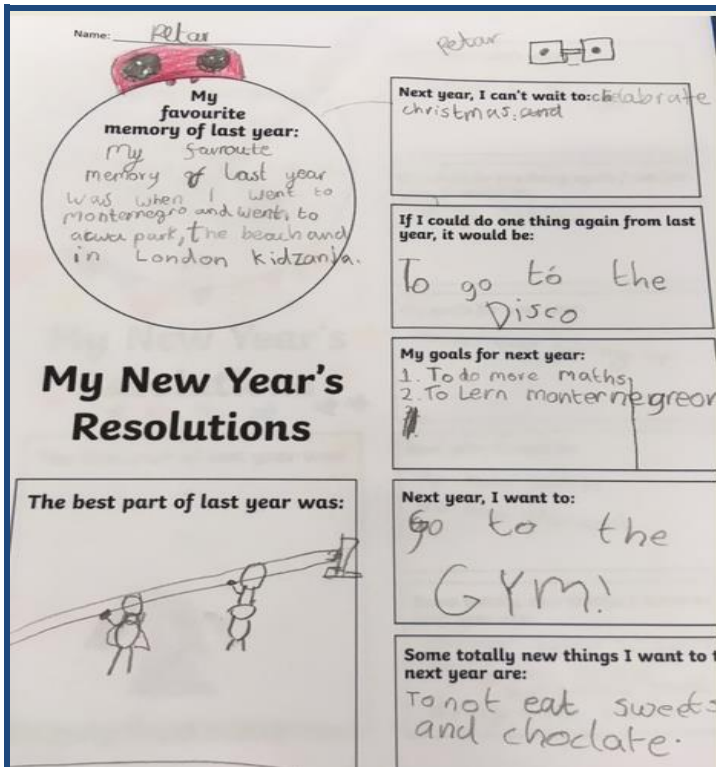 Name: Petar
My
favourite
memory of last year:
My favroute
memory of Last year
was when I went to
monternegro and went to
acwa park, the beach and
in London Kidzania.
My New Year's
Resolutions
The best part of last year was:
Petar
Next year, I can't wait to: celabrate
christmas. and
If I could do one thing again from last
year, it would be:
To go to the
Disco
My goals for next year:
1. To do more maths
2. To Lern monternegreor
Next year, I want to:
go to the
GYM!
Some totally new things I want to t
next year are:
To not eat sweets
and choclate.